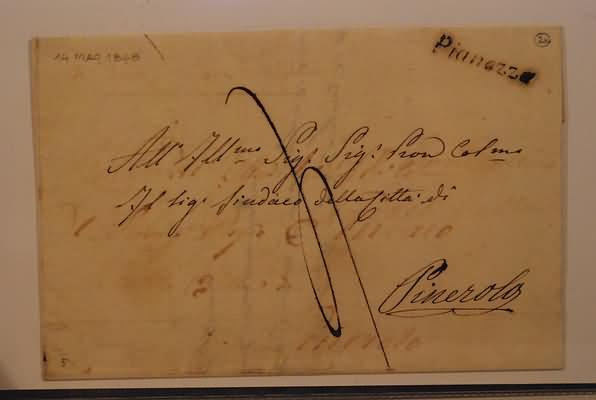 14 MAG 1848
Pianezza
All' Ill.mo Sig.r Sig.r Pron Col.mo
Il Sig.r Sindaco della Città di
Pinerolo
5